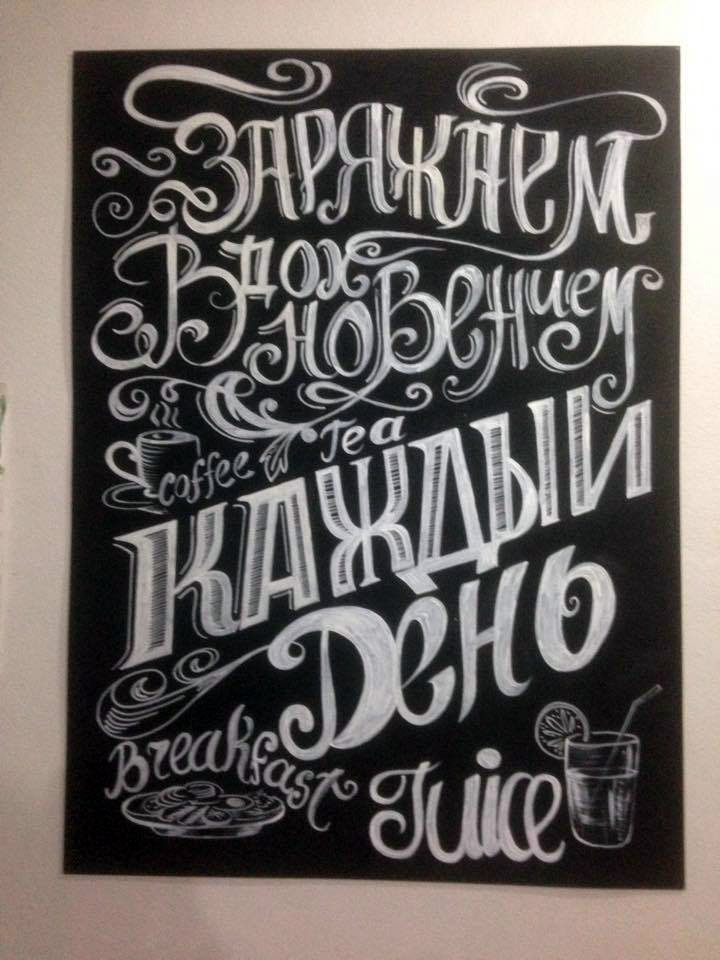 ЗАРЯЖАЕМ
Вдох
новением
Coffee Tea
КАЖДЫЙ
День
Breakfast
Juice